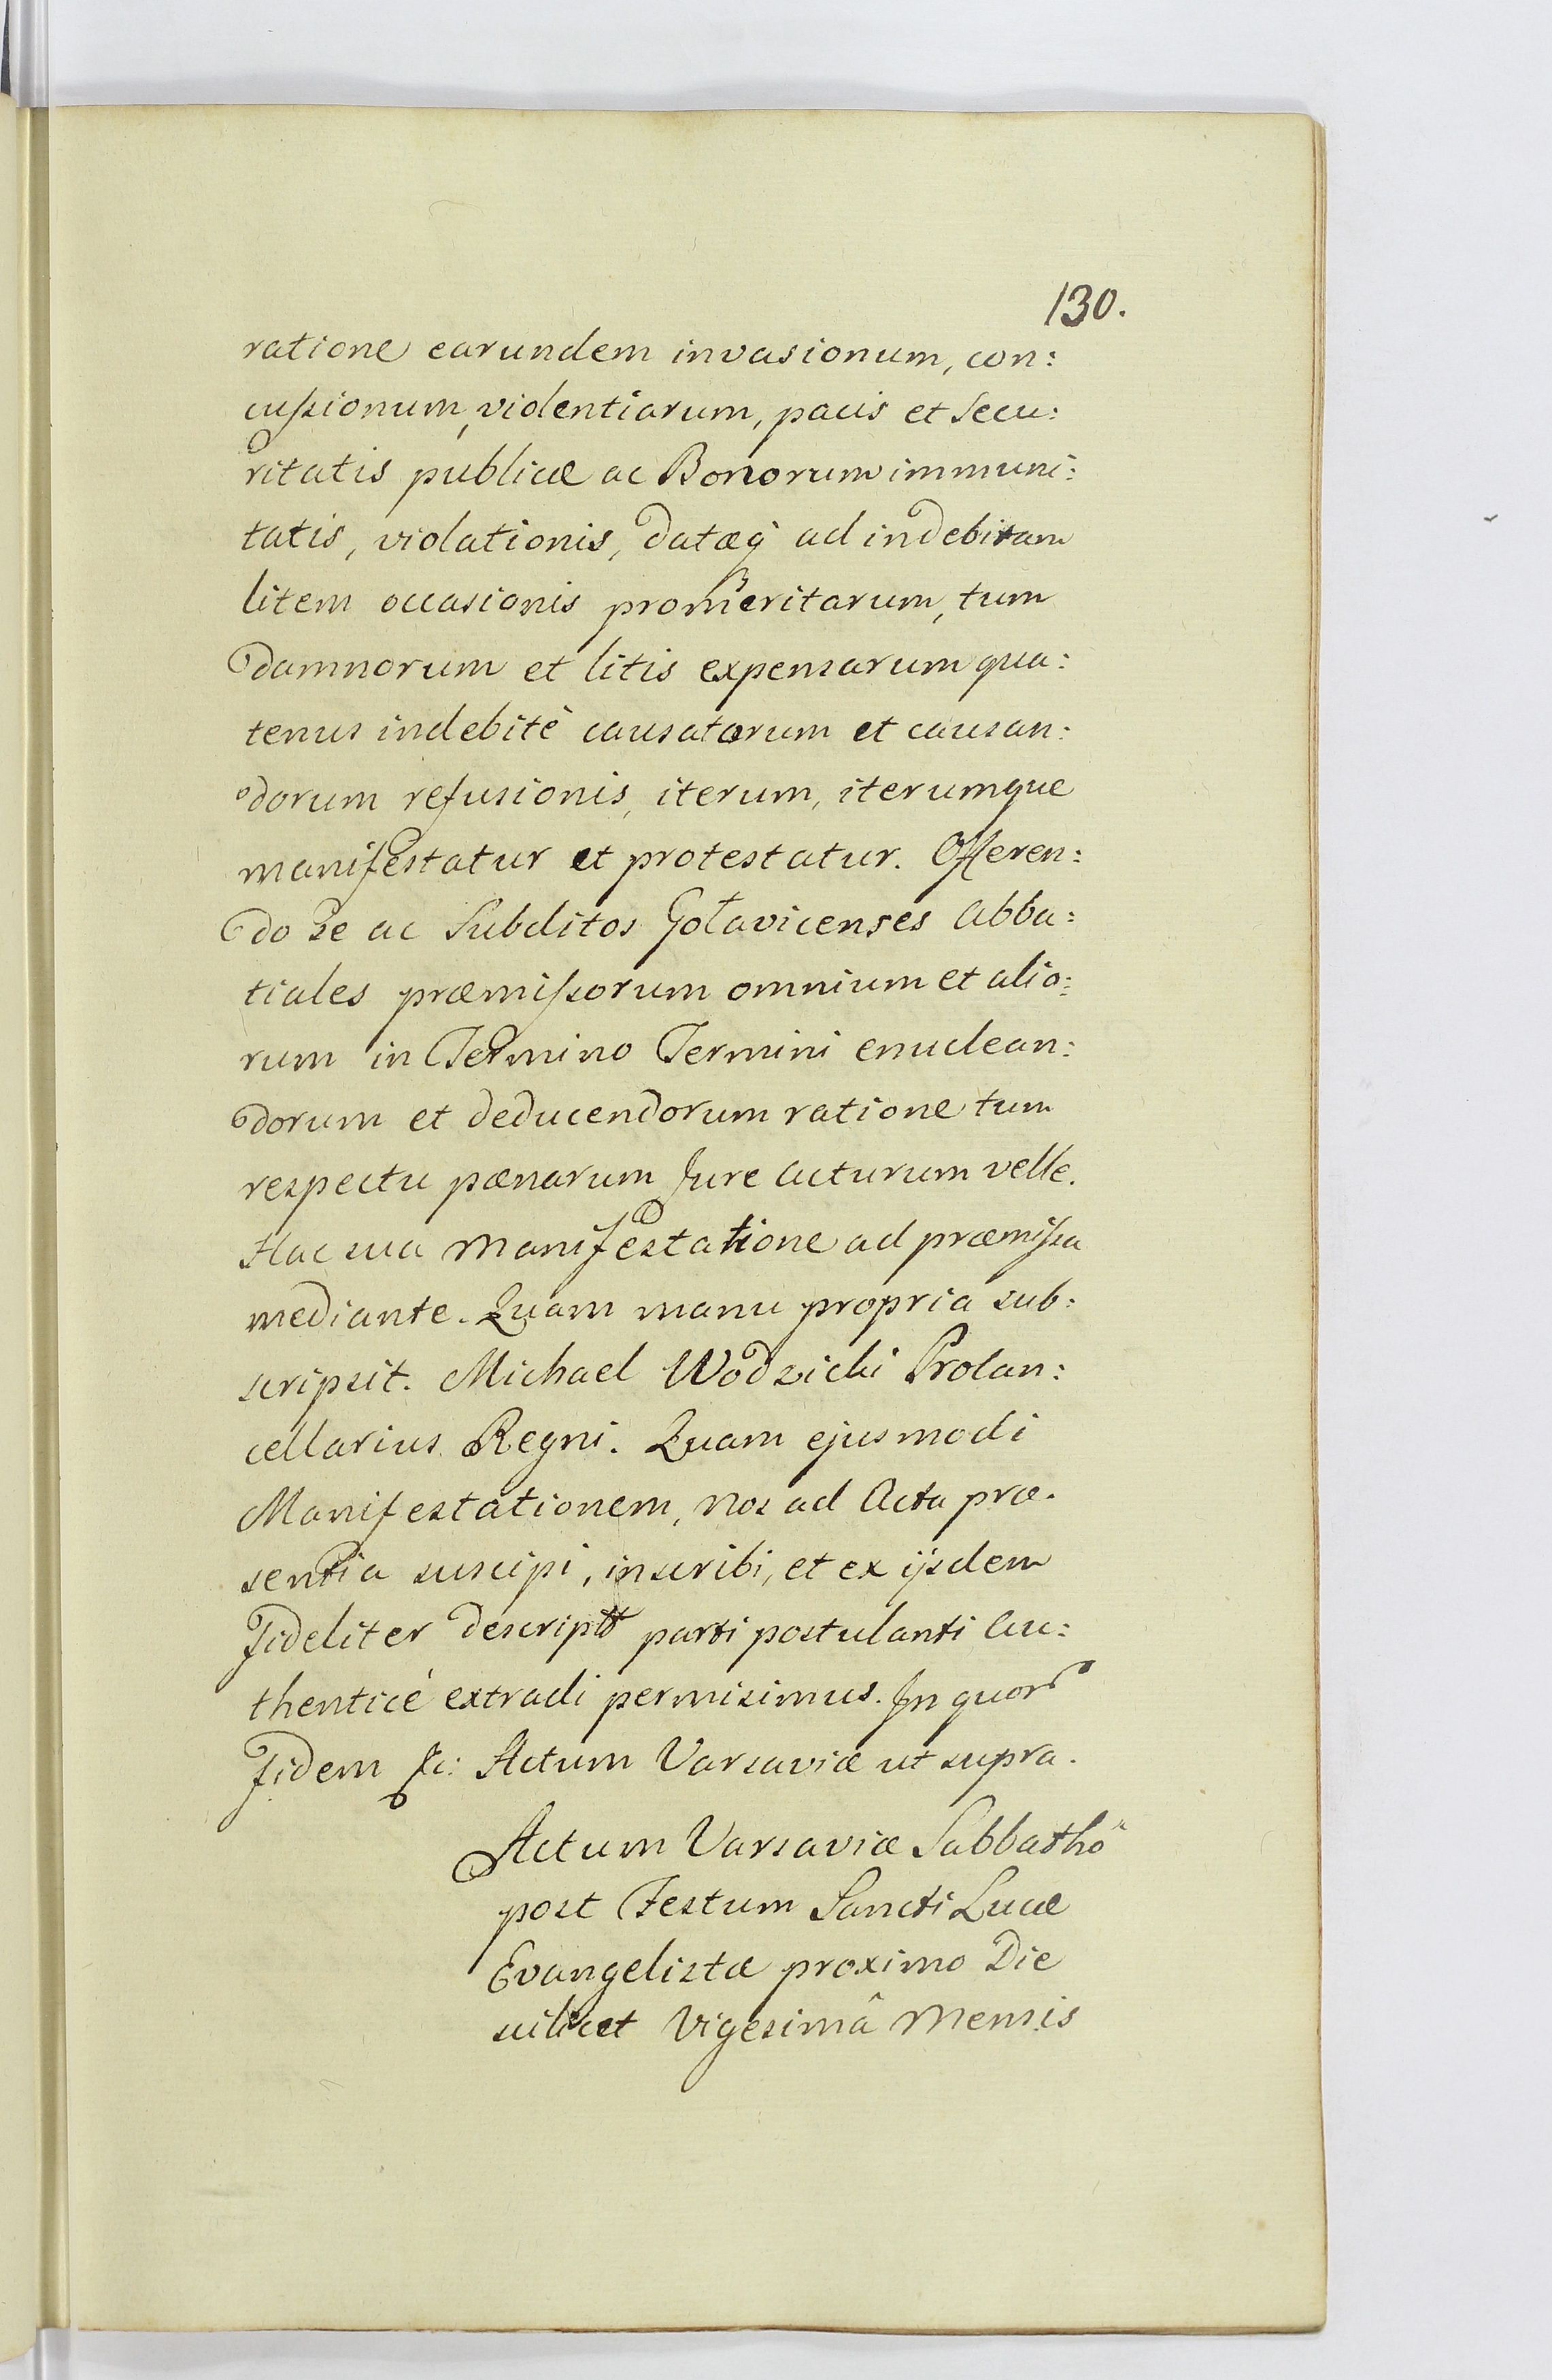 130.
ratione earundem invasionum, con:
cussionum, violentiarum, pacis et Secu:
ritatis publicæ ac Bonorum immuni:
tatis, violationis, datæq ad indebitam
litem occasionis promeritarum, tum
damnorum et litis expensarum qua:
tenus indebitè causatarum et causan:
dorum refusionis, iterum, iterumque
manifestatur et protestatur. Offeren:
do se ac Subditos Goławicenses Abba:
tiales præmissorum omnium et alio:
rum in Termino Termini enuclean:
dorum et deducendorum ratione tum
respectu pænarum Jure acturum velle.
Hac sua Manifestatione ad præmissa
mediante. Quam manu propria sub:
scripsit. Michael Wodzicki Procan:
cellarius Regni. Quam ejusmodi
Manifestationem, Nos ad Acta præ.
sentia suscipi, inscribi, et ex ijsdem
Fideliter descript parti postulanti Au:
thenticè extradi permisimus. In quor
Fidem &c: Actum Varsaviæ ut supra.
Actum Varsaviæ Sabbathô
post Festum Sancti Lucæ
Evangelistæ proximo Die
scilicet Vigesimâ Mensis